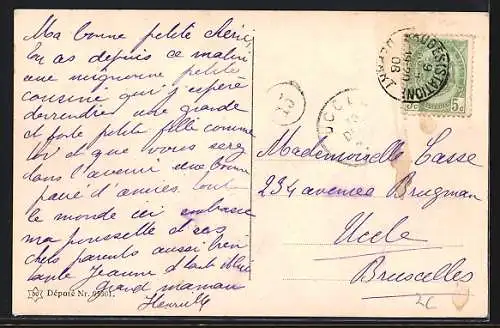 Ma bonne petite chérie
tu as depuis ce matin
une mignonne petite
cousine qui j'espère
deviendra une grande
et forte petite fille comme
toi et que vous serez
dans l'avenir une bonne
paire d'amies. tout
le monde ici embrasse
ma poussette et ses
chers parents aussi bien
tante Jeanne et tante
grand maman
Henri
Déposé Nr.
UCCLE
5c 5c
Mademoiselle Casse
234 avenue Brugman
Uccle
Bruxelles